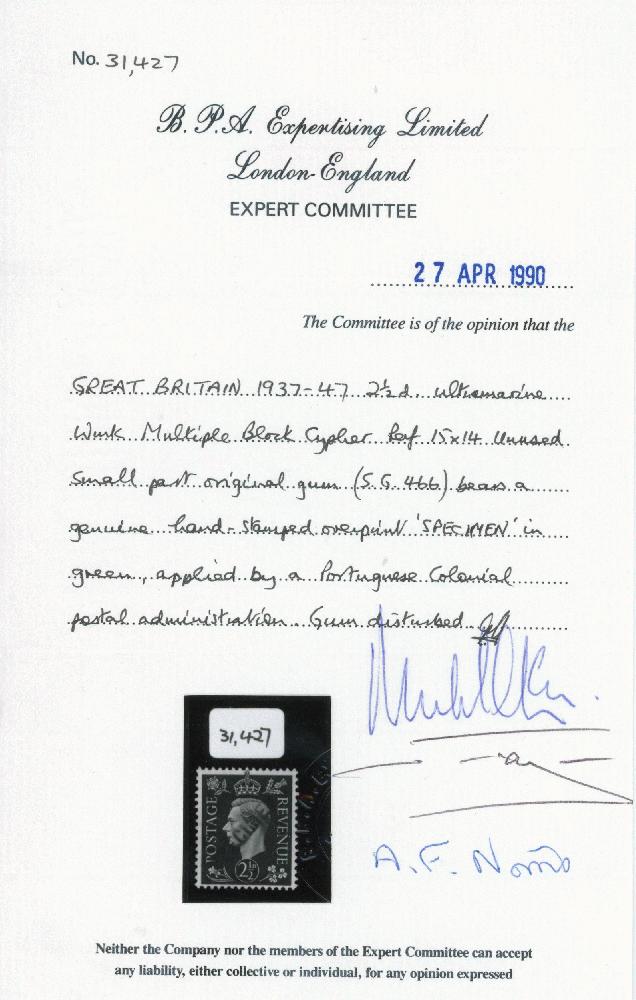 No. 31,427
B. P. A. Expertising Limited
London-England
EXPERT COMMITTEE
27 APR 1990
The Committee is of the opinion that the
GREAT BRITAIN 1937-47 2½d. ultramarine
Wmk Multiple Block Cypher Perf 15x14 Unused
small part original gum (S.G. 466) bears a
genuine hand-stamped overprint 'SPECIMEN' in
green, applied by a Portuguese Colonial
postal administration. Gum disturbed
31,427
POSTAGE
REVENUE
2½D
A. F. Norris
Neither the Company nor the members of the Expert Committee can accept
any liability, either collective or individual, for any opinion expressed